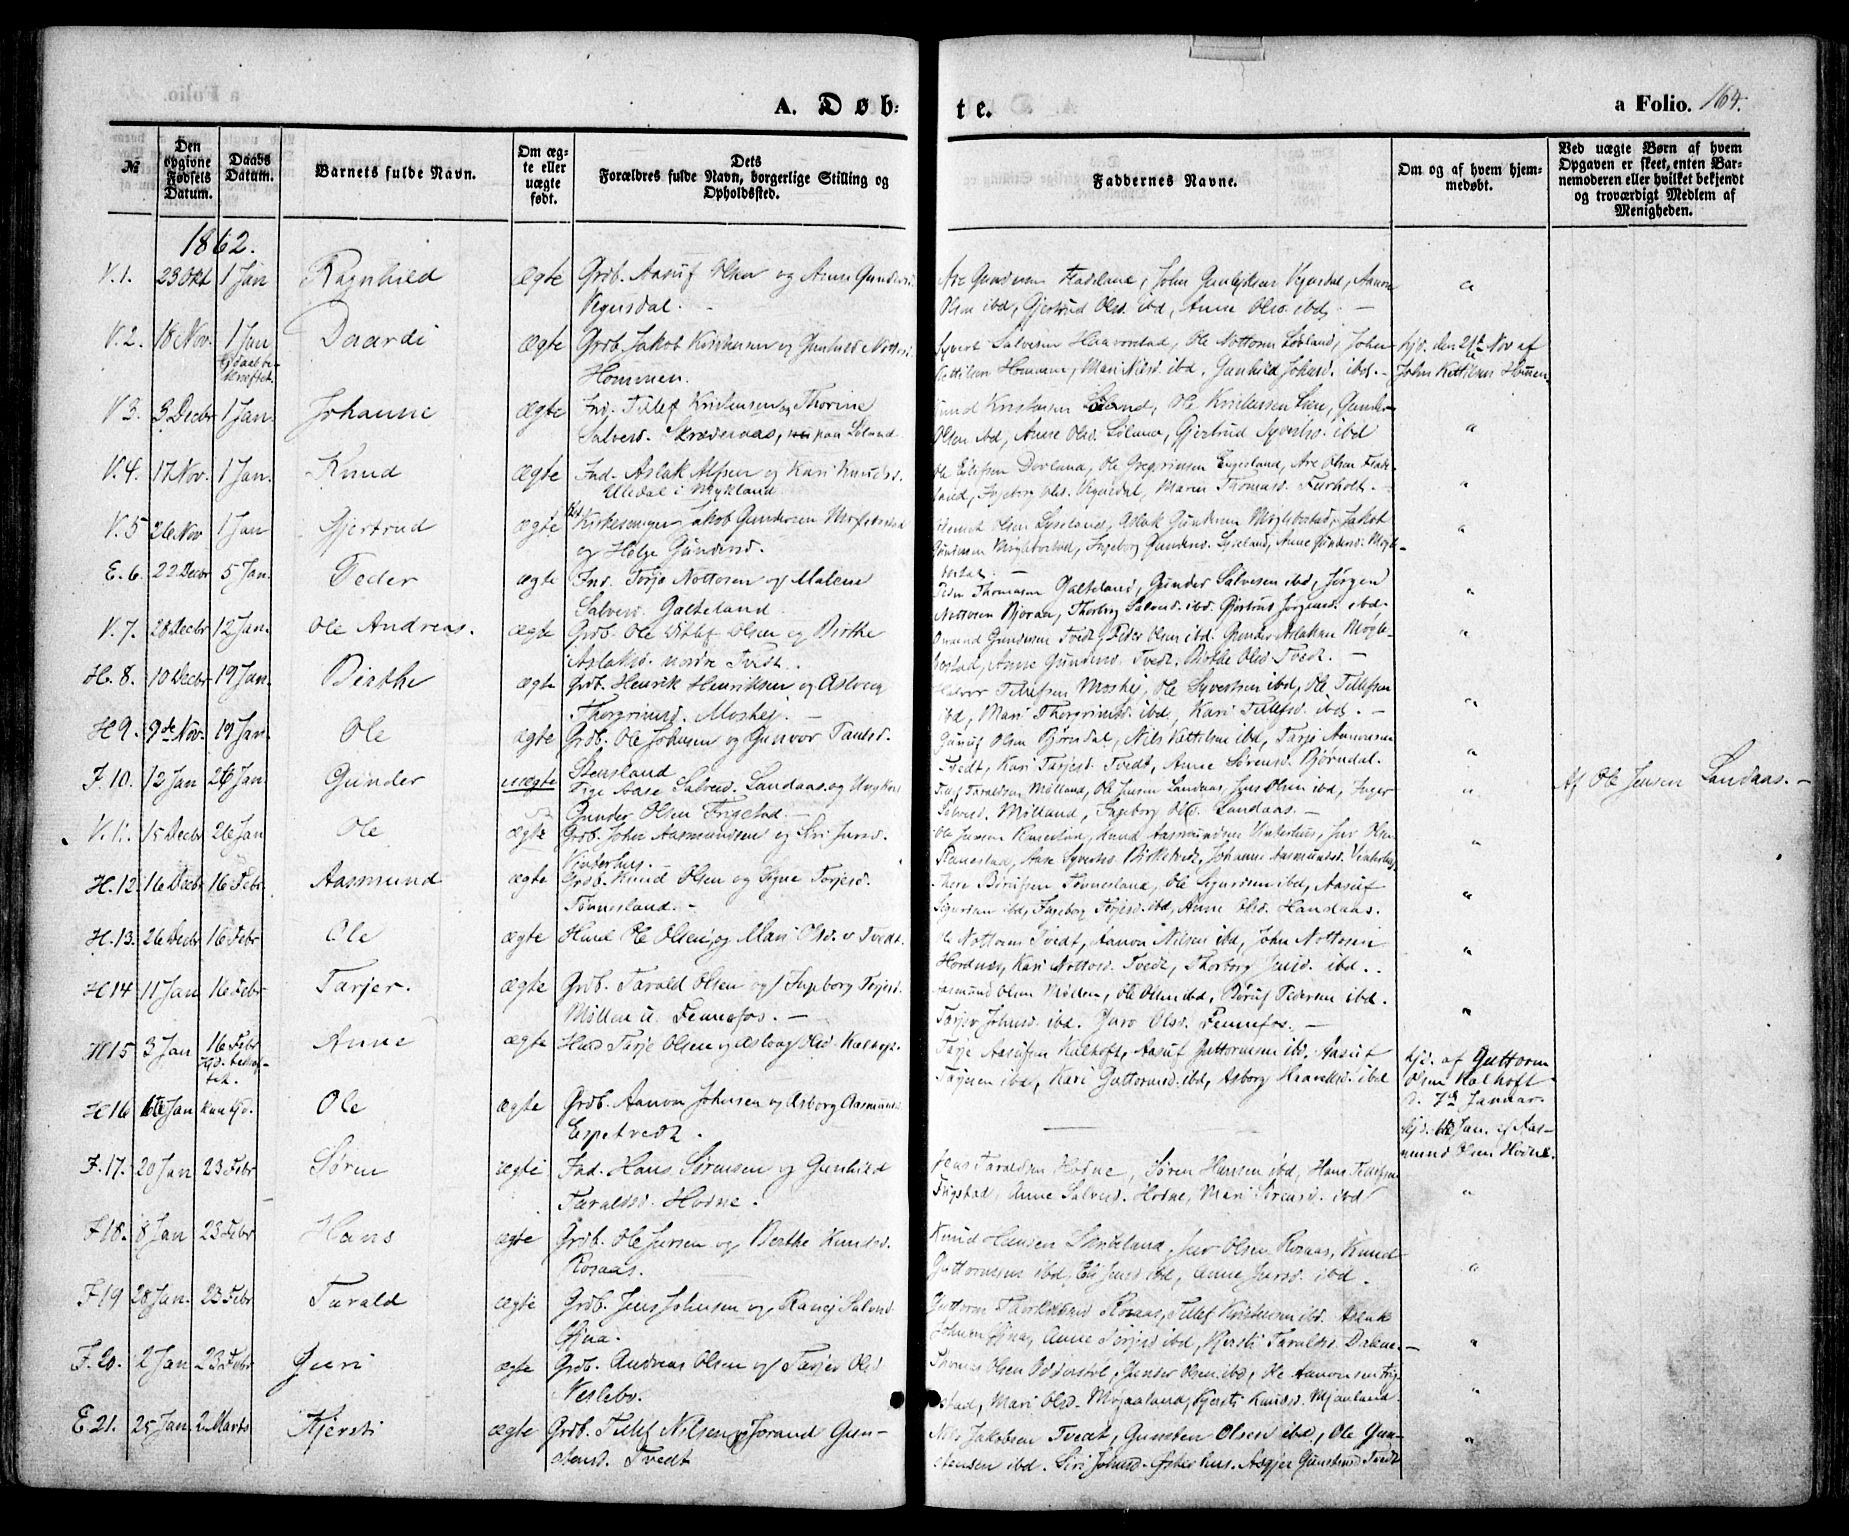 A. Døb-
te.
a Folio. 164.
№
Den opgivne Fødsels Datum.
Daabs Datum.
Barnets fulde Navn.
Om ægte eller uægte født.
Dets Forældres fulde Navn, borgerlige Stilling og Opholdssted.
Faddernes Navne.
Om og af hvem hjemmedøbt.
Ved uægte Børn af hvem Opgaven er skeet, enten Barnemoderen eller hvilket bekjendt og troværdigt Medlem af Menigheden.
1862.
V. 1. 23 Okt 1 Jan Ragnhild ægte Grdb. Aasuf Olsen og Anne Gundersd.
Vegusdal.
Are Gundersen Fladeland, John Gunleiksen Vegusdal, Aanon
Olsen ibd, Gjertrud Olsd. ibd, Anne Olsd. ibd. "
V. 2. 18 Nov. 1 Jan Daardi ægte Grdb. Jakob Kristensen og Gunhild Nottosd.
Hommen.
Syvert Salvesen Haavorstad, Ole Nottosen Løvland, John
Kittilsen Hommen, Mari Nilsd ibd, Gunhild Johnsd. ibd. -
hjd. den 21de Nov af
John Kittilsen Hommen
V. 3. 3 Decbr 1 Jan. Johanne ægte Ind. Tellef Kristensen og Thorine
Salvesd. Skrederaas, nu paa Løland
Knud Kristensen Løland, Ole Kristensen Lien, Gunder
Olsen ibd, Anne Olsd. Løland, Gjertrud Syvertsd. ibd "
V. 4. 17 Nov. 1 Jan. Knud ægte Ind. Aslak Alfsen og Kari Knudsd.
Uledal i Mykland
Ole Eilefsen Dovland, Ole Gregersen Engesland, Are Olsen Flade-
land, Ingeborg Olsd. Vegusdal, Maren Thomasd. Furholt. - "
V. 5 26 Nov 1 Jan Gjertrud ægte Kirkesanger Jakob Gundersen Moglebostad
og Helge Gundersd.
Olsen Lyseland, Aslak Gundersen Moglebostad, Jakob
Gundersen Moglebostad, Ingeborg Gundersd. Lyseland, Anne Gundersd. Mogle-
bostad. - "
E. 6. 22 Decbr 5 Jan. Peder ægte Ind. Terje Nottosen og Malene
Salvesd. Galteland.
Peder Thomassen Galteland, Gunder Salvesen ibd, Jørgen
Nottosen Bjoraa, Thorborg Salvesd. ibd. Gjertrud Jørgensd. ibd. "
V. 7. 20 Decbr 12 Jan. Ole Andreas. ægte Grdb. Ole Ditlef Olsen og Birthe
Aslaksd. nordre Tvedt.
Gundersen Tvedt, Peder Olsen ibd. Gunder Aslaksen Mogle-
bostad, Anne Gundersd. Tvedt, Birthe Olsd. Tvedt. - "
H. 8. 10 Decbr 19 Jan. Birthe ægte Grdb. Henrik Henriksen og Aslaug
Thorgrimsd. Moshej. -
Halvor Tellefsen Moshej, Ole Syvertsen ibd, Ole Tellefsen
ibd, Mari Thorgrimsd. ibd, Kari Tellefsd. ibd. - "
H 9. 9de Nov. 19 Jan. Ole ægte Grdb. Ole Johnsen og Gunvor
Stensland
Olsen Bjørndal, Nils Kittilsen ibd, Terje Aanonsen
Tvedt, Kari Terjesd. Tvedt, Anne Sørensd. Bjørndal. "
F. 10. 12 Jan 26 Jan. Gunder uægte Pige Aase Salvesd. Landaas og Ungkarl
Gunder Olsen Frigstad. -
Tellef Taraldsen Mølland, Ole Jensen Landaas, Jens Olsen ibd, Inger
Salvesd. Mølland, Ingeborg Olsd. Landaas. - "
Af Ole Jensen Landaas. -
V. 11. 15 Decbr 26 Jan Ole ægte Grdb. John Aasmundsen og Siri Jursd.
Vinterhus.
Ole Knud Aasmundsen Vinterhus, Jur Olsen
Aase Syvertsd. Birketvedt, Johanne Aasmundsd. Vinterhus "
H. 12 16 Decbr 16 Febr. Aasmund ægte Grdb. Knud Olsen og Signe Terjesd.
Tønnesland. -
Tønnesland, Ole Sigurdsen ibd, Aasuf
Sigurdsen ibd, Ingeborg Terjesd. ibd, Anne Olsd. Handaas. "
H. 13. 26 Decbr 16 Febr Ole ægte Husmd Ole Olsen og Mari Olsd. v Tvedt.
Ole Nottosen Tvedt, Aanon Nilsen ibd, John Nottosen
Hordnes, Kari Nottosd. Tvedt, Thorborg Jensd. ibd. . "
H 14 11 Jan 16 Febr Terjer. ægte Grdb. Tarald Olsen og Ingeborg Terjesd.
Møllen u. Fennefos. -
Aasmund Olsen Møllen, Ole Olsen ibd. Børuf Pedersen ibd.
Terjer Johnsd. ibd. Guro Olsd. Fennefos. - "
H 15 3 Jan 16 Febr Anne ægte Husmd Terje Olsen og Aslaug Olsd Kalhoft.
Terje Aasufsen Kalhoft, Aasuf Guttormsen ibd, Aasuf
Terjesen ibd, Kari Guttormsd. ibd, Asborg Haavaldsd. ibd
hjd. af Guttorm
Olsen Kalhoft
d. 7de Januar.
H 16 16 Jan kun hjd. Ole ægte Grdb. Aanon Johnsen og Asborg Aasmundsd.
Espetvedt.
hjd. 16 Jan. af Aas-
mund Olsen Hodne.
F. 17. 20 Jan 23 Febr Søren ægte Ind. Hans Sørensen og Gunhild
Taraldsd. Hodne.
Jens Taraldsen Hodne, Søren Hansen ibd, Hans Tellefsen
Frigstad, Anne Salvesd. Hodne, Mari Sørensd. ibd "
F 18. 8 Jan 23 Febr Hans ægte Grdb. Ole Jursen og Berthe Knudsd.
Rosaas.
Knud Hansen Jur Olsen Rosaas, Knud
Guttormsen ibd, Eli Jursd ibd, Anne Jursd. ibd. "
F 19 28 Jan. 23 Febr Tarald ægte Grdb. Jens Johnsen og Ranej Salvesd
Guttorm Rosaas, Tellef Kristensen ibd. Aslak
Johnsen Anne Terjesd ibd, Kjersti Taraldsd. Dalene. - "
F. 20. 2 Jan 23 Febr Guri ægte Grdb. Andreas Olsen og Terjer Olsd
Neslebo.
Thomas Olsen Gunder Olsen ibd, Ole Aanonsen Frig-
stad, Mari Olsd. Mjaaland, Kjersti Knudsd. Mjaaland "
E 21. 25 Jan 2 Marts Kjersti ægte Grdb. Tellef Nilsen og Jorand Gun-
stensd. Tvedt
Nils Jakobsen Tvedt, Gunsten Olsen ibd, Ole Gun-
stensen ibd. Siri Johnsd. Østerhus. Asgjer Gunstensd Tvedt "